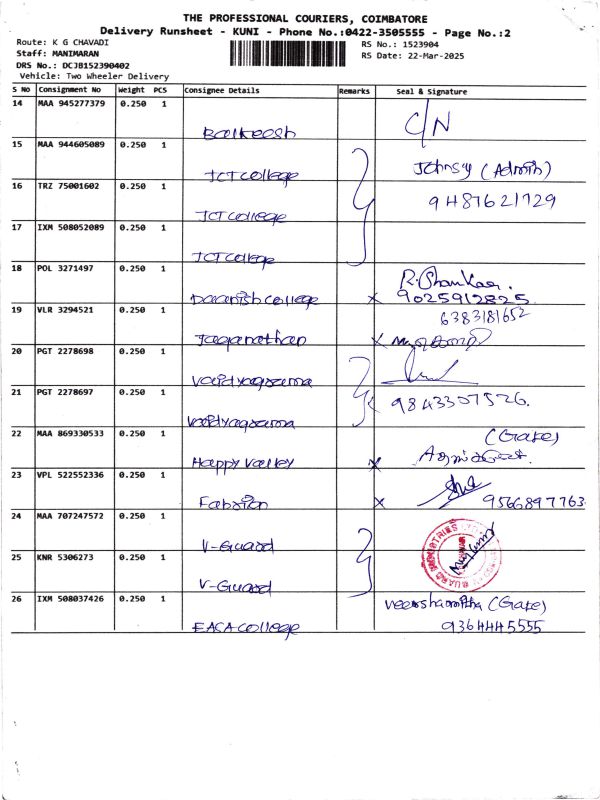 THE PROFESSIONAL COURIERS, COIMBATORE
Delivery Runsheet - KUNI - Phone No.:0422-3505555 - Page No.:2
Route: K G CHAVADI
RS No.: 1523904
Staff: MANIMARAN
RS Date: 22-Mar-2025
DRS No.: DCJB152390402
Vehicle: Two Wheeler Delivery
S No Consignment No Weight PCS Consignee Details Remarks Seal & Signature
14 MAA 945277379 0.250 1 C/N
15 MAA 944605089 0.250 1 JCT college Johnsy (Admin)
16 TRZ 75001602 0.250 1 JCT college 9487621729
17 IXM 508052089 0.250 1 JCT college
18 POL 3271497 0.250 1 Daanish college x R. Shankar. 9025912825
19 VLR 3294521 0.250 1 Jaganathan x 6383181652
20 PGT 2278698 0.250 1
21 PGT 2278697 0.250 1 9843307526.
22 MAA 869330533 0.250 1 Happy valley x (Gate)
23 VPL 522552336 0.250 1 x 9566897763
24 MAA 707247572 0.250 1 V-Guard
25 KNR 5306273 0.250 1 V-Guard
26 IXM 508037426 0.250 1 EASA college (Gate) 9364445555